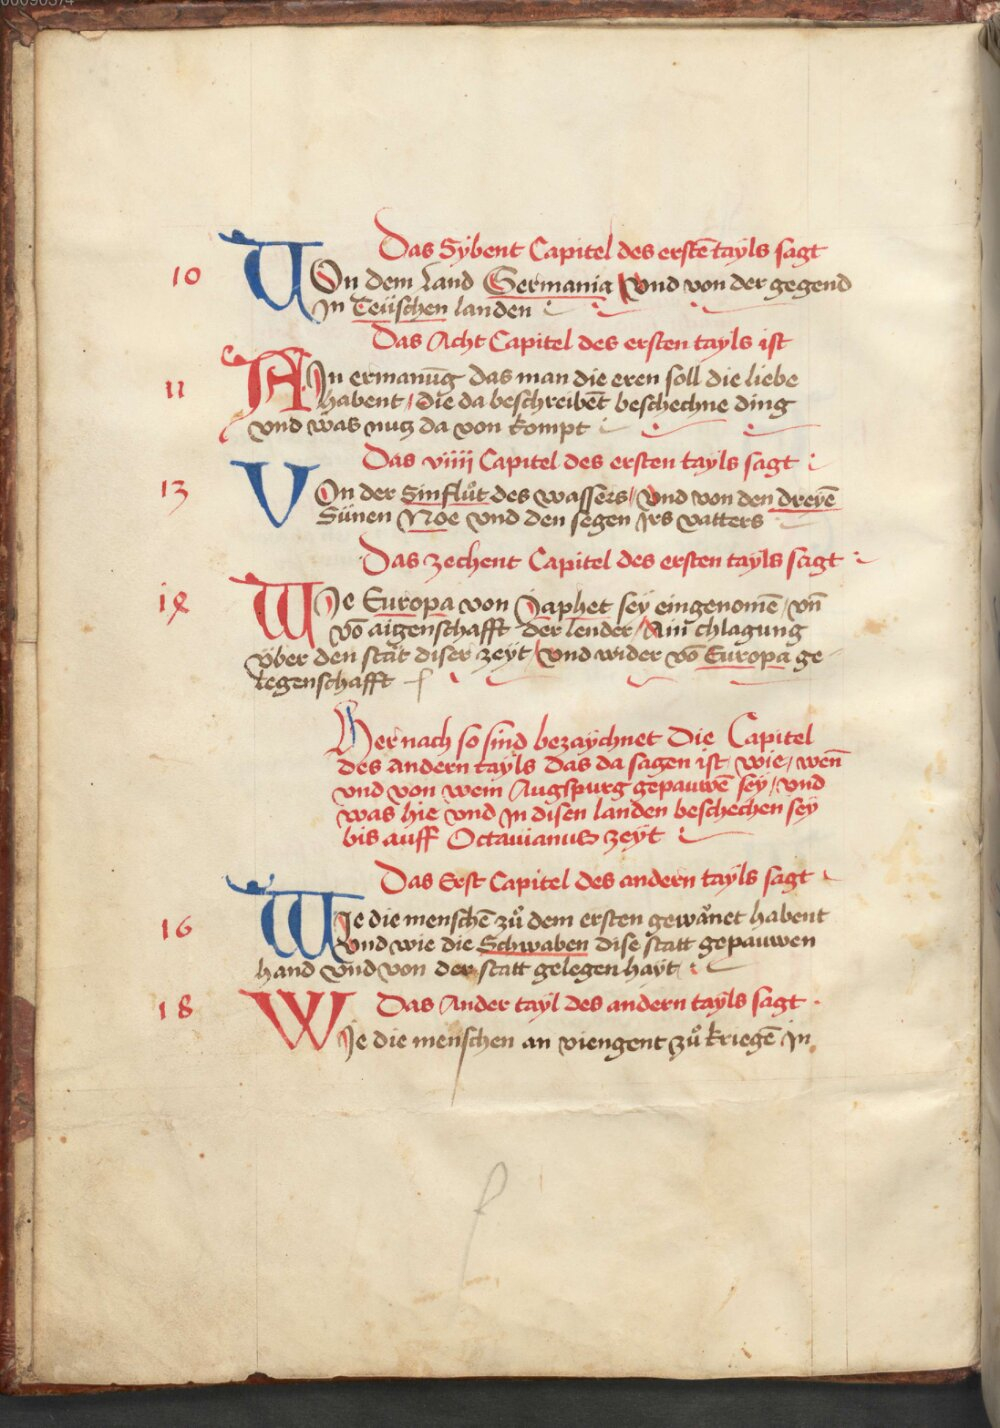 Das Sÿbent Capitel des erstē taÿls sagt
10 VOn dem Land Germania vnd von der gegend
Jn Teüschen landen
Das Acht Capitel des ersten taÿls ist
11 AJn ermanūg das man die eren soll die liebe
habent / die da beschreibēt beschechne ding
vnd was nutz da von kompt
Das viiii Capitel des ersten taÿls sagt
13 VOn der Sinflůt des wassers / vnd von den dreÿē
Sünen Noe vnd den segen Jrs vatters
Das zechent Capitel des ersten taÿls sagt
WJe Europa von Japhet seÿ eingenomē / vn̄
vō aigenschafft der lender / Ain chlagung
über den stat diser zeÿt / vnd wider vō Europa ge
legenschafft
Hernach so sind bezaÿchnet Die Capitel
des andern taÿls Das da sagen ist / wie / wen̄
vnd von wem Augspurg gepauwē seÿ / vnd
was hie vnd Jn disen landen beschechen seÿ
bis auff Octauianus zeÿt
Das Erst Capitel des andern taÿls sagt
16 WJe die menschē zů dem ersten gewånet habent
vnd wie die Schwaben dise statt gepauwen
hand vnd von der statt gelegenhaÿt
18 Das Ander taÿl des andern taÿls sagt
WJe die menschen an viengent zů kriegē Jn